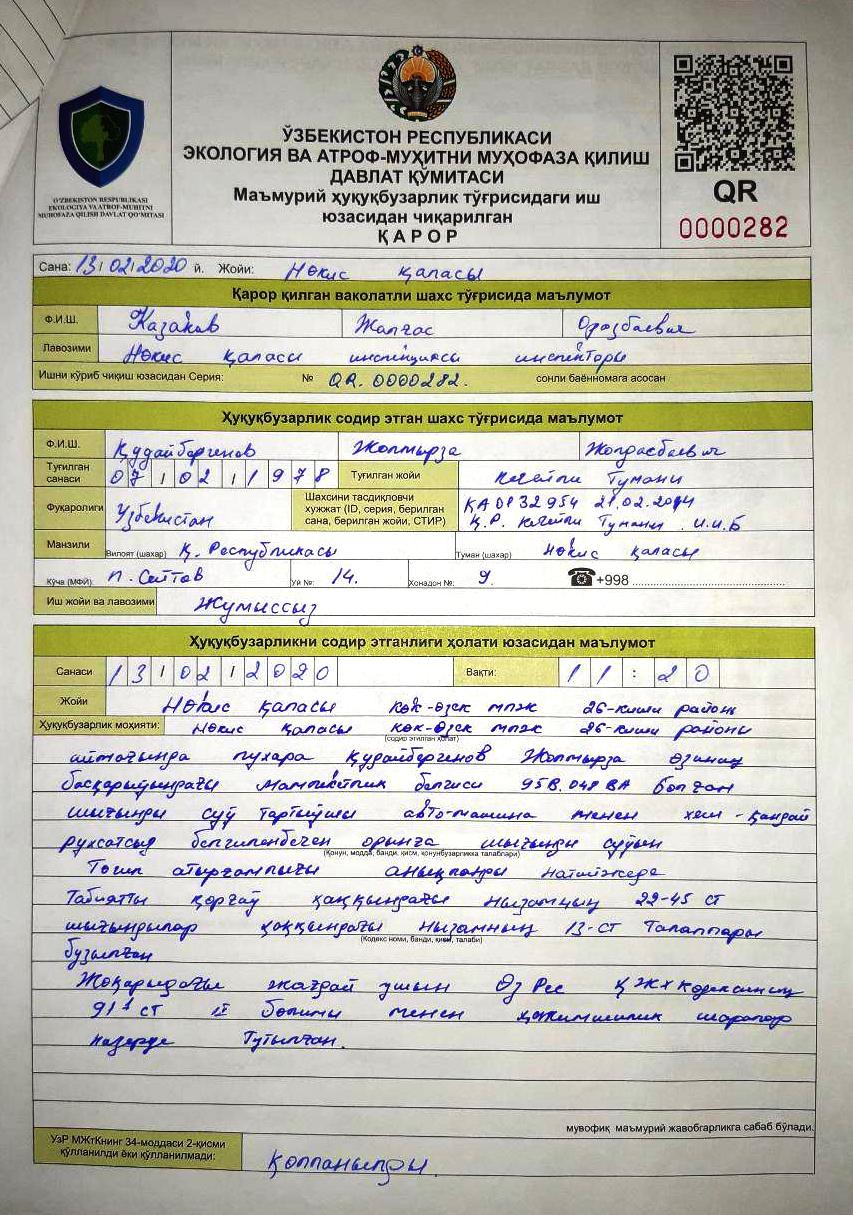 O'ZBEKISTON RESPUBLIKASI
EKOLOGIYA VA ATROF-MUHITNI
MUHOFAZA QILISH DAVLAT QO'MITASI
ЎЗБЕКИСТОН РЕСПУБЛИКАСИ
ЭКОЛОГИЯ ВА АТРОФ-МУҲИТНИ МУҲОФАЗА ҚИЛИШ
ДАВЛАТ ҚЎМИТАСИ
Маъмурий ҳуқуқбузарлик тўғрисидаги иш
юзасидан чиқарилган
ҚАРОР
QR
0000282
Сана: 13/02/2020 й. Жойи: Нөкис қаласы
Қарор қилган ваколатли шахс тўғрисида маълумот
Ф.И.Ш. Казаков Жалғас Оразбаевич
Лавозими Нөкис қаласы инспекциясы инспекторы
Ишни кўриб чиқиш юзасидан Серия: № QR. 0000282. сонли баённомага асосан
Ҳуқуқбузарлик содир этган шахс тўғрисида маълумот
Ф.И.Ш. Қудайбергенов Жолмырза Жолдасбаевич
Туғилган санаси 07/02/1978 Туғилган жойи Кегейли Тумани
Фуқаролиги Узбекистан Шахсини тасдиқловчи ҳужжат (ID, серия, берилган сана, берилган жойи, СТИР) КА0132954 21.02.2014
Қ.Р. Кегейли Тумани И.И.Б
Манзили Вилоят (шаҳар) Қ. Республикасы Туман (шаҳар) Нөкис қаласы
Кўча (МФЙ): П. Сейтов Уй №: 14. Хонадон №: 9. +998
Иш жойи ва лавозими Жумыссыз
Ҳуқуқбузарликни содир этганлиги ҳолати юзасидан маълумот
Санаси 13/02/2020 Вақти: 11:20
Жойи Нөкис қаласы көк-өзек мпж 26-киши районы
Ҳуқуқбузарлик моҳияти: Нөкис қаласы көк-өзек мпж 26-киши районы
(содир этилган ҳолат)
аймағында пухара Қудайбергенов Жолмырза өзиниң
басқарыўындағы мәмлекетлик белгиси 95В.048ВА болған
шығынды суў тартыўшы авто-машина менен хеш-қандай
рухсатсыз белгиленбеген орынға шығынды суўын
(Қонун, модда, банди, қисм, қонунбузарликка талаблари)
Төгип атырғанлығы анықланды нәтийжеде
Тәбиятты қорғаў ҳаққындағы Нызамның 22-45 ст
шығындылар ҳаққындағы нызамның 13-ст Талаплары
(Кодекс номи, банди, қисм, талаби)
бузылған
Жоқарыдағы жағдай ушын Өз Рес ҚЖҳКодексиниң
91¹ ст II бөлими менен ҳәкимшилик шаралар
нәзерде Тутылған.
мувофиқ маъмурий жавобгарликга сабаб бўлади.
УзР МЖтКнинг 34-моддаси 2-қисми
қўлланилди ёки қўлланилмади: Қолланылды.